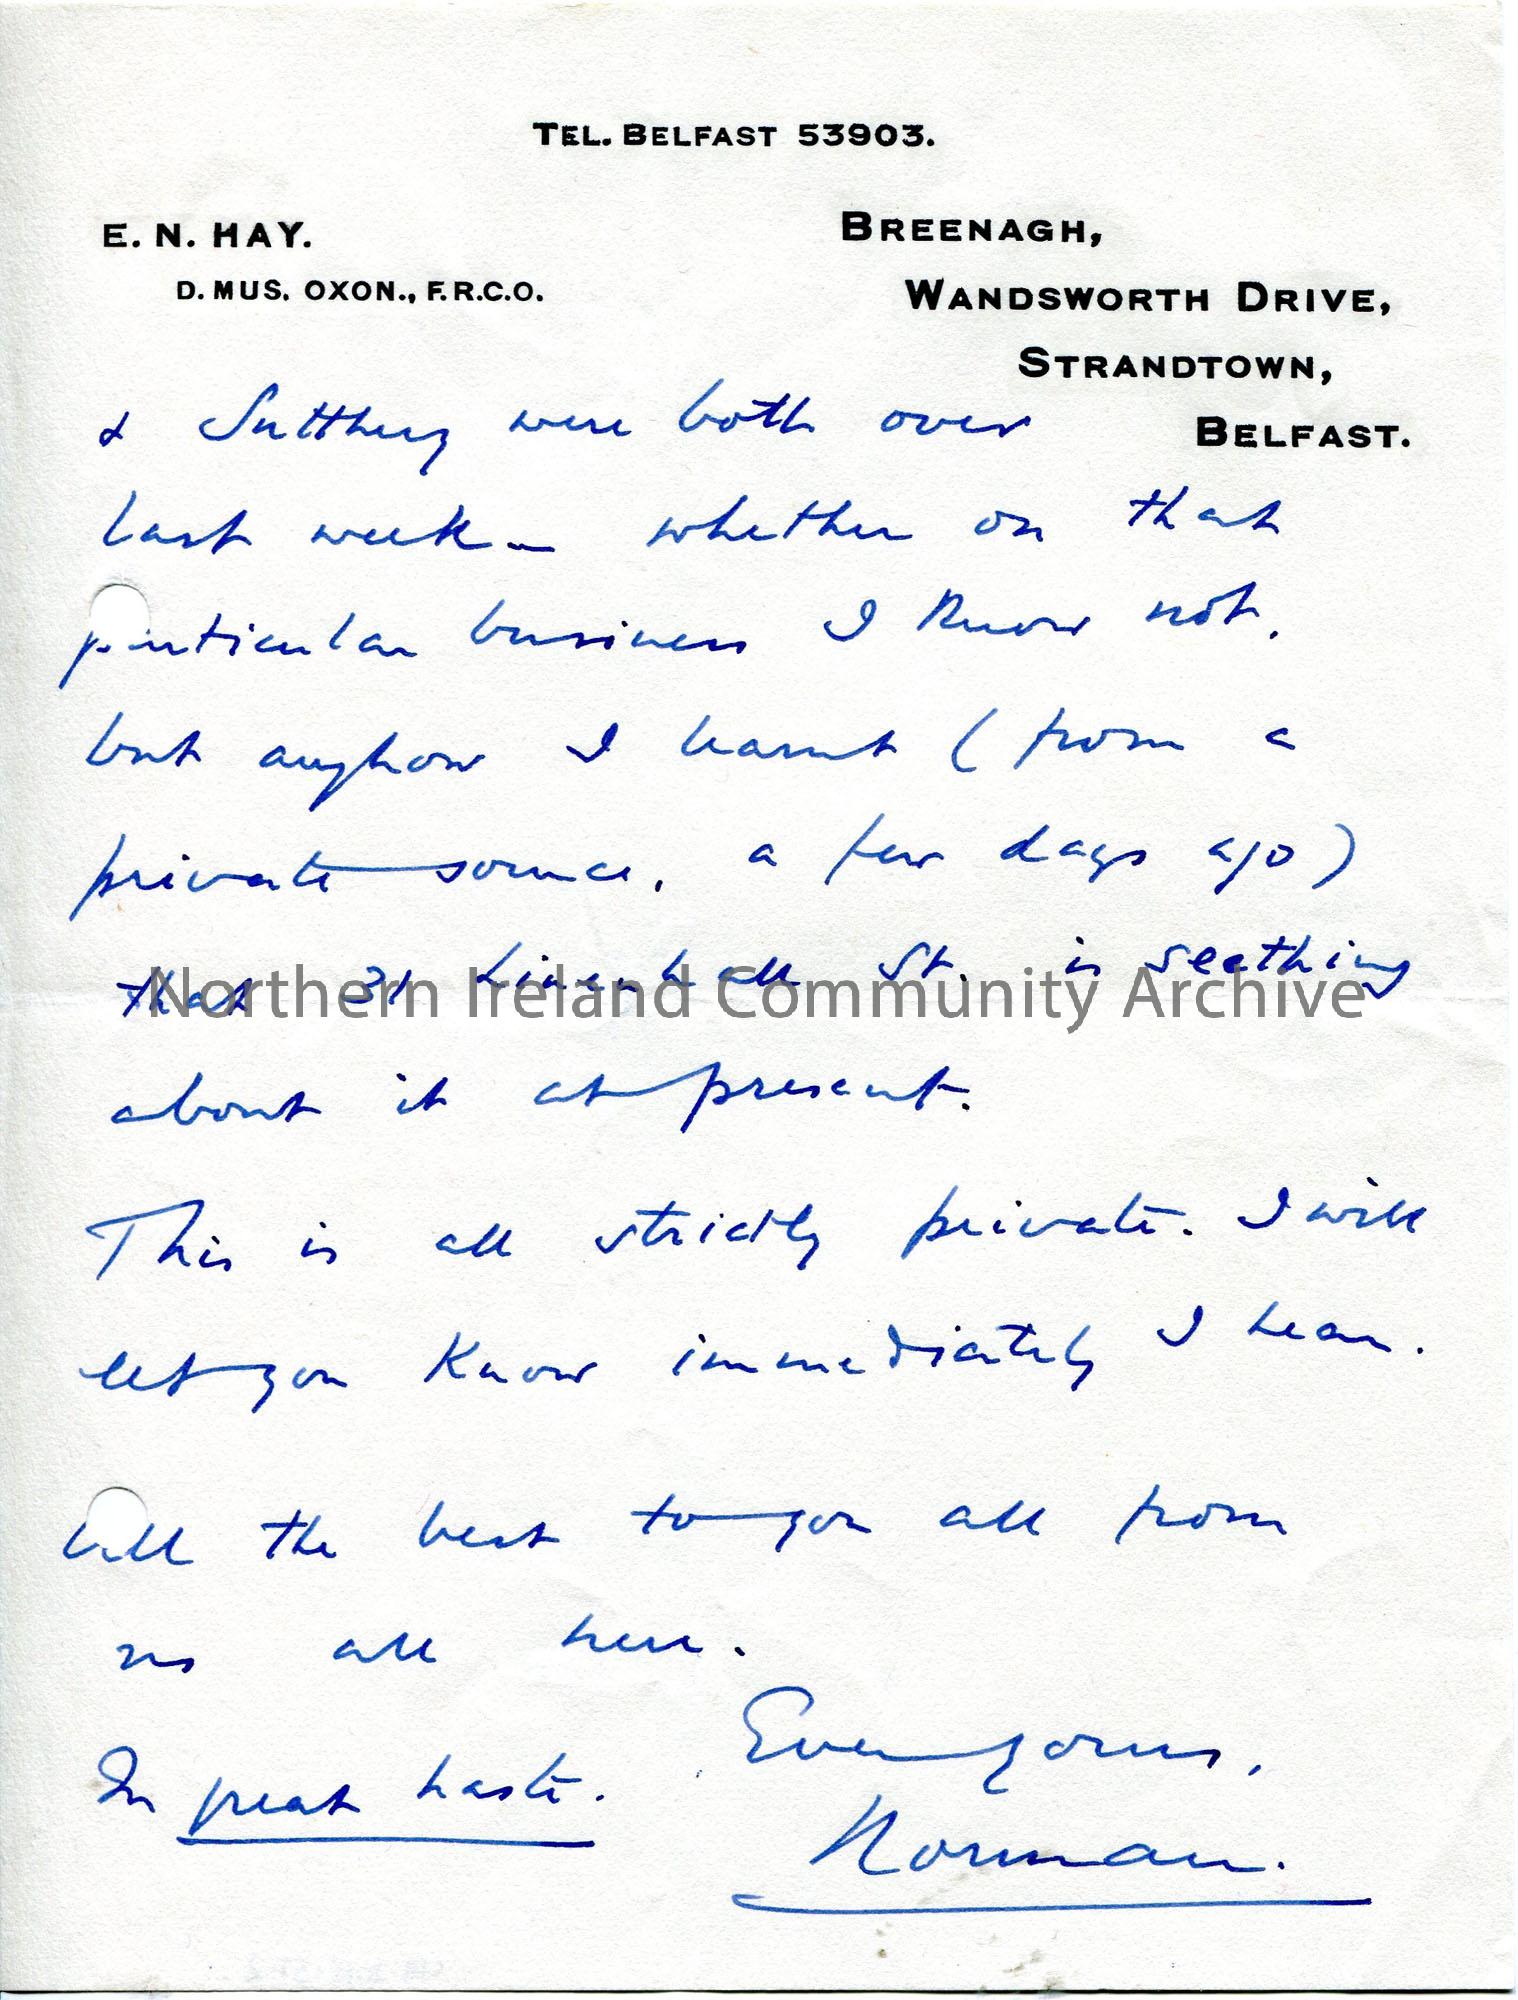 TEL. BELFAST 53903.
E. N. HAY.
D. MUS. OXON., F.R.C.O.
BREENAGH,
WANDSWORTH DRIVE,
STRANDTOWN,
BELFAST.
& Sutthery were both over
last week – whether on that
particular business I know not,
but anyhow I learnt (from a
private source, a few days ago)
that 31 Linenhall St. is seething
about it at present.
Northern Ireland Community Archive
This is all strictly private. I will
let you know immediately I hear.
All the best to you all from
us all here.
Ever yours,
In great haste.
Norman.